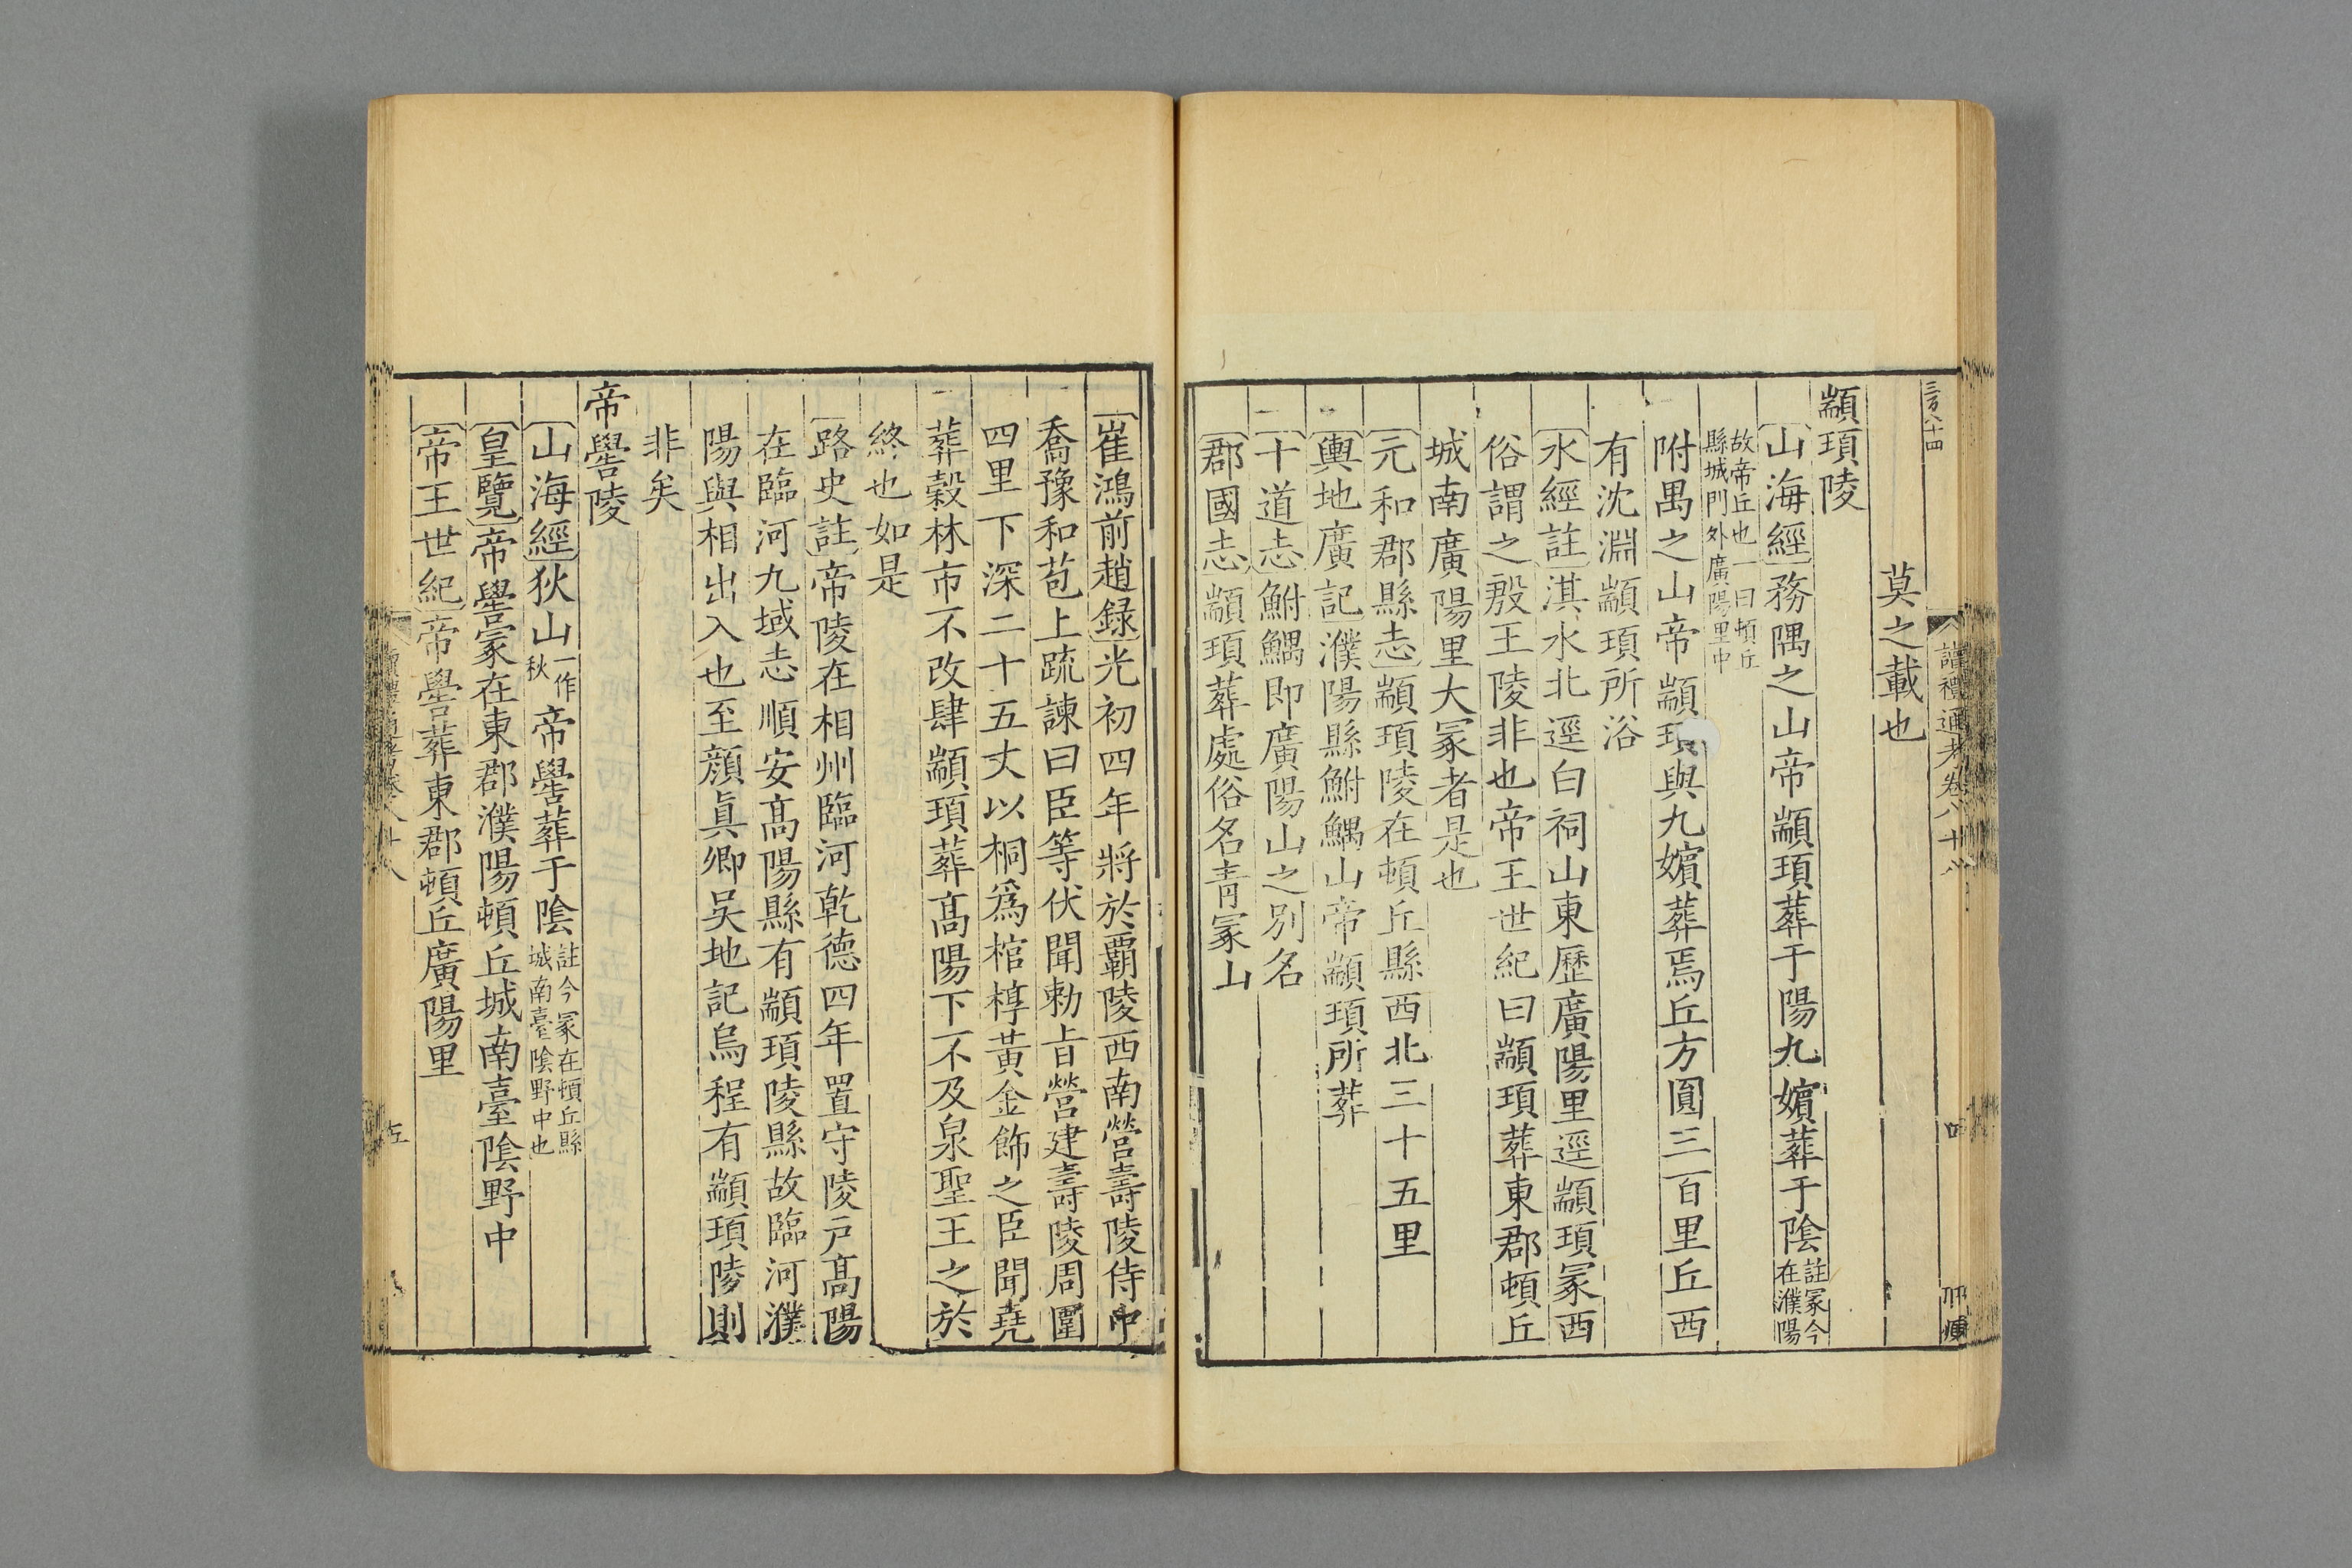 三百八十四
讀禮通考卷八十八
四
莫之載也
顓頊陵
〔山海經〕務隅之山帝顓頊葬于陽九嬪葬于陰註冢今在濮陽
故帝丘也一曰頓丘
縣城門外廣陽里中
附禺之山帝顓頊與九嬪葬焉丘方圓三百里丘西
有沈淵顓頊所浴
〔水經註〕淇水北逕白祠山東歷廣陽里逕顓頊冢西
俗謂之殷王陵非也帝王世紀曰顓頊葬東郡頓丘
城南廣陽里大冢者是也
〔元和郡縣志〕顓頊陵在頓丘縣西北三十五里
〔輿地廣記〕濮陽縣鮒鰅山帝顓頊所葬
〔十道志〕鮒鰅即廣陽山之別名
〔郡國志〕顓頊葬處俗名青冢山
〔崔鴻前趙録〕光初四年將於霸陵西南營壽陵侍中
喬豫和苞上疏諫曰臣等伏聞勅旨營建壽陵周圍
四里下深二十五丈以桐爲棺椁黃金飾之臣聞堯
葬穀林市不改肆顓頊葬高陽下不及泉聖王之於
終也如是
〔路史註〕帝陵在相州臨河乾德四年置守陵户高陽
在臨河九域志順安高陽縣有顓頊陵縣故臨河濮
陽與相出入也至顔眞卿吴地記烏程有顓頊陵則
非矣
帝嚳陵
〔山海經〕狄山一作秋帝嚳葬于陰註今冢在頓丘縣城南臺陰野中也
〔皇覽〕帝嚳冢在東郡濮陽頓丘城南臺陰野中
〔帝王世紀〕帝嚳葬東郡頓丘廣陽里